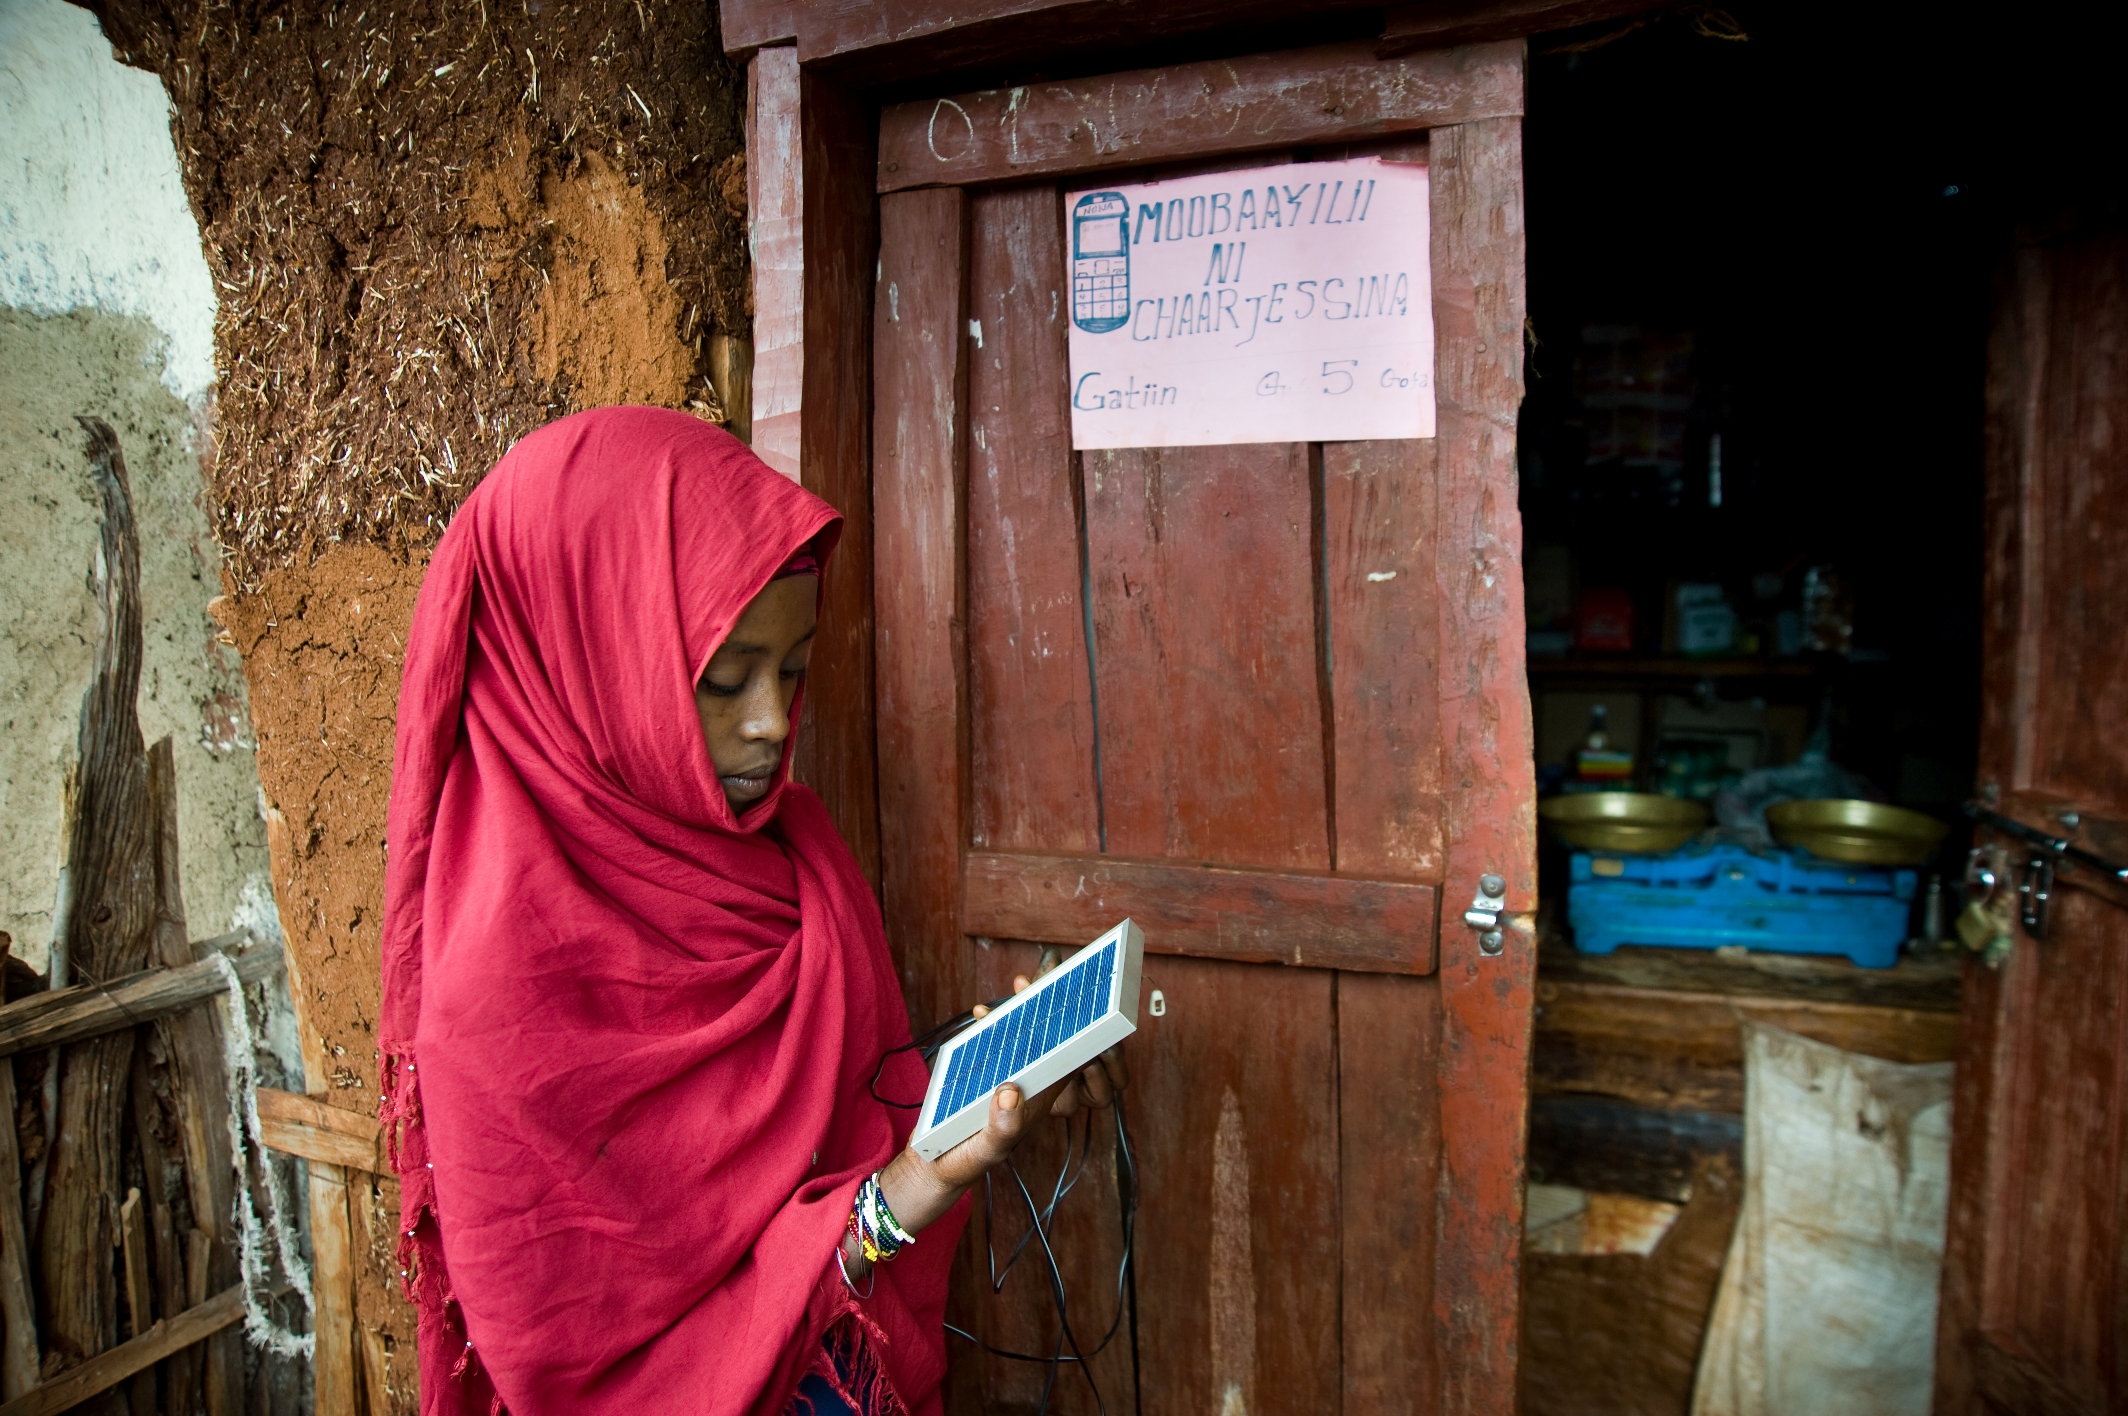 NOKIA
MOOBAAYILII
NI
CHAARJESSINA
Gatiin @ 5 Gofa